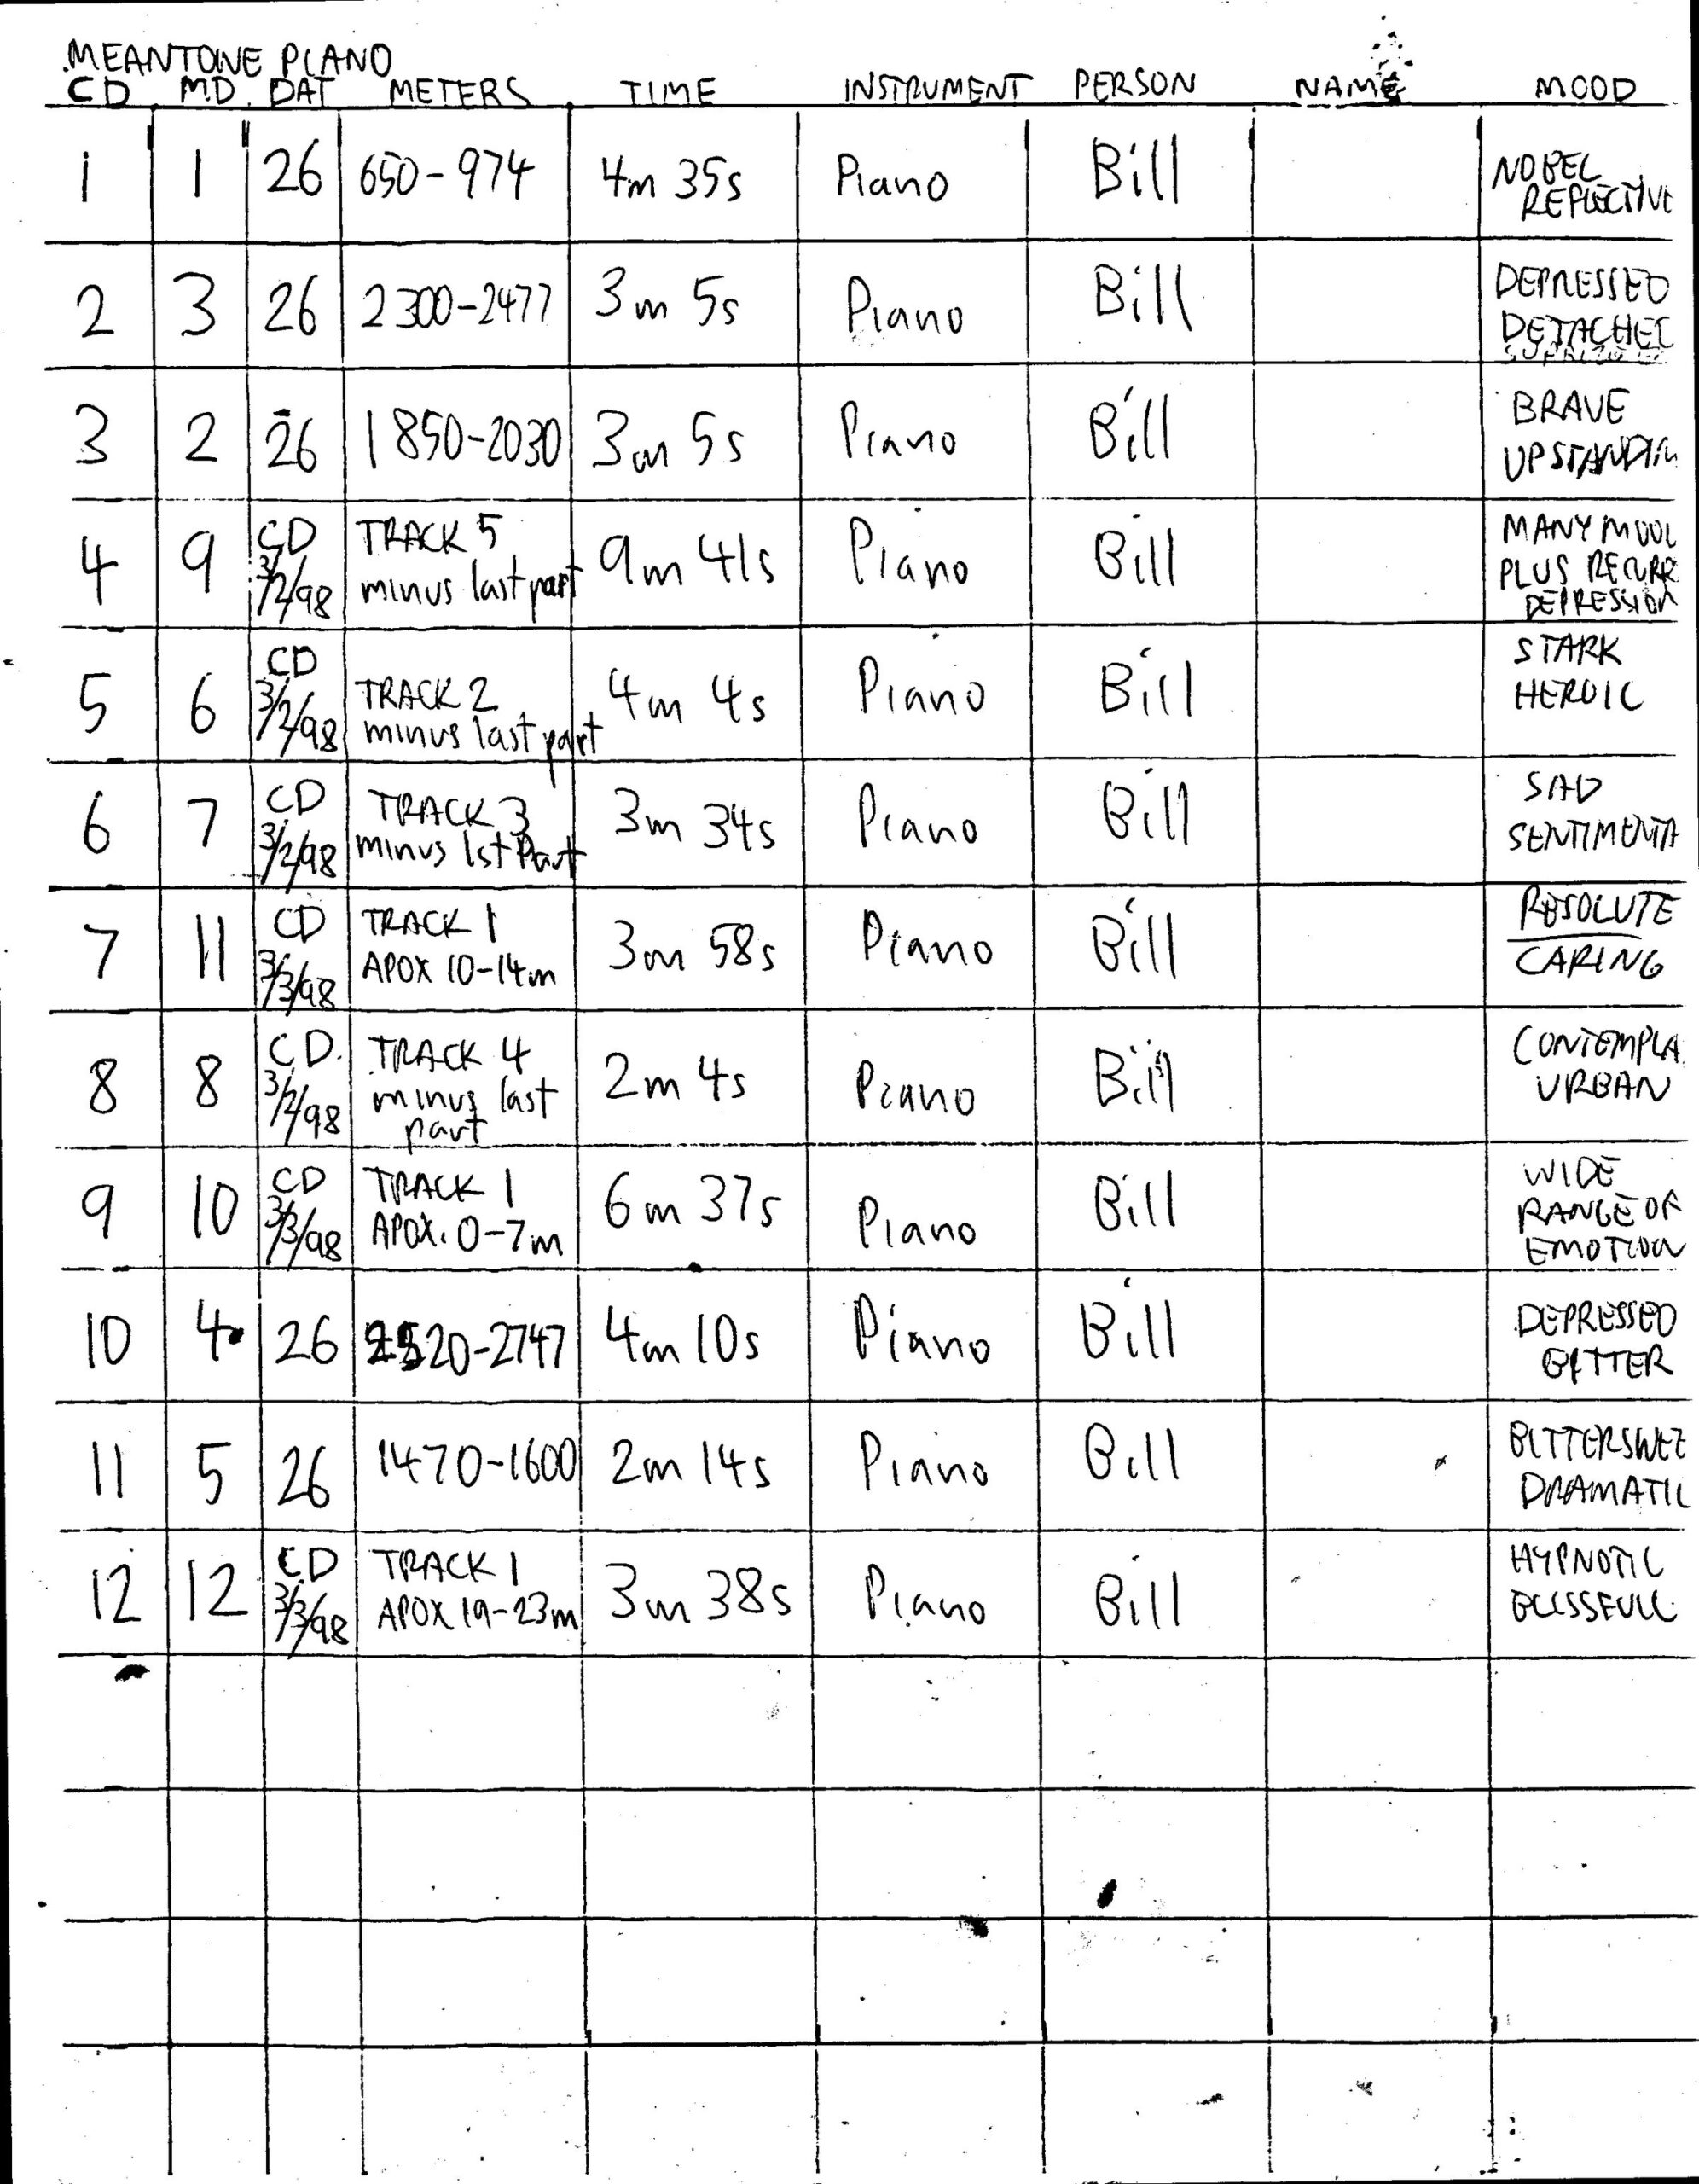 MEANTONE PIANO
CD MD DAT METERS TIME INSTRUMENT PERSON NAME MOOD
1 1 26 650-974 4m 35s Piano Bill NOBEL
REFLECTIVE
2 3 26 2300-2477 3m 5s Piano Bill DEPRESSED
DETACHED
3 2 26 1850-2030 3m 5s Piano Bill BRAVE
UPSTANDIN
4 9 CD TRACK 5 9m 41s Piano Bill MANY MOOD
3/2/98 minus last part PLUS RECURR
DEPRESSION
5 6 CD TRACK 2 4m 4s Piano Bill STARK
3/2/98 minus last part HEROIC
6 7 CD TRACK 3 3m 34s Piano Bill SAD
3/2/98 minus 1st Part SENTIMENTA
7 11 CD TRACK 1 3m 58s Piano Bill RESOLUTE
3/3/98 APOX 10-14m CARING
8 8 CD. TRACK 4 2m 4s Piano Bill CONTEMPLA
3/2/98 minus last URBAN
part
9 10 CD TRACK 1 6m 37s Piano Bill WIDE
3/3/98 APOX. 0-7m RANGE OF
EMOTION
10 4 26 2520-2747 4m 10s Piano Bill DEPRESSED
BITTER
11 5 26 1470-1600 2m 14s Piano Bill BITTERSWEE
DRAMATIC
12 12 CD TRACK 1 3m 38s Piano Bill HYPNOTIC
3/3/98 APOX 19-23m BLISSFULL